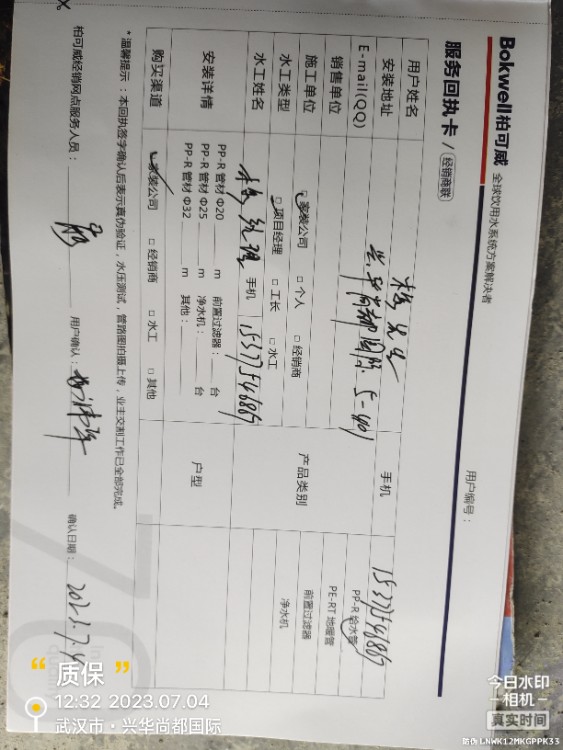 Bokwell柏可威 全球饮用水系统方案解决者
服务回执卡 / 经销商联
用户编号：
用户姓名 杨先生 手机 15377546867
安装地址 兴华尚都国际 5-401
E-mail(QQ)
销售单位
产品类别
PP-R 给水管
PE-RT 地暖管
前置过滤器
净水机
施工单位 家装公司 □ 个人 □ 经销商
水工类型 □ 项目经理 □ 工长 □ 水工
水工姓名 杨经理 手机 15377546867
安装详情
PP-R 管材 Φ20 m 前置过滤器： 台
PP-R 管材 Φ25 m 净水机： 台
PP-R 管材 Φ32 m 其他：
户型
购买渠道 家装公司 □ 经销商 □ 水工 □ 其他
*温馨提示：本回执签字确认后表示真伪验证，水压测试，管路图拍摄上传，业主交割工作已全部完成。
柏可威经销网点服务人员： 用户确认： 确认日期： 2023.7.4
“ 质保 ”
12:32 2023.07.04
武汉市·兴华尚都国际
今日水印
相机
真实时间
防伪 LNWK12MKGPPK33